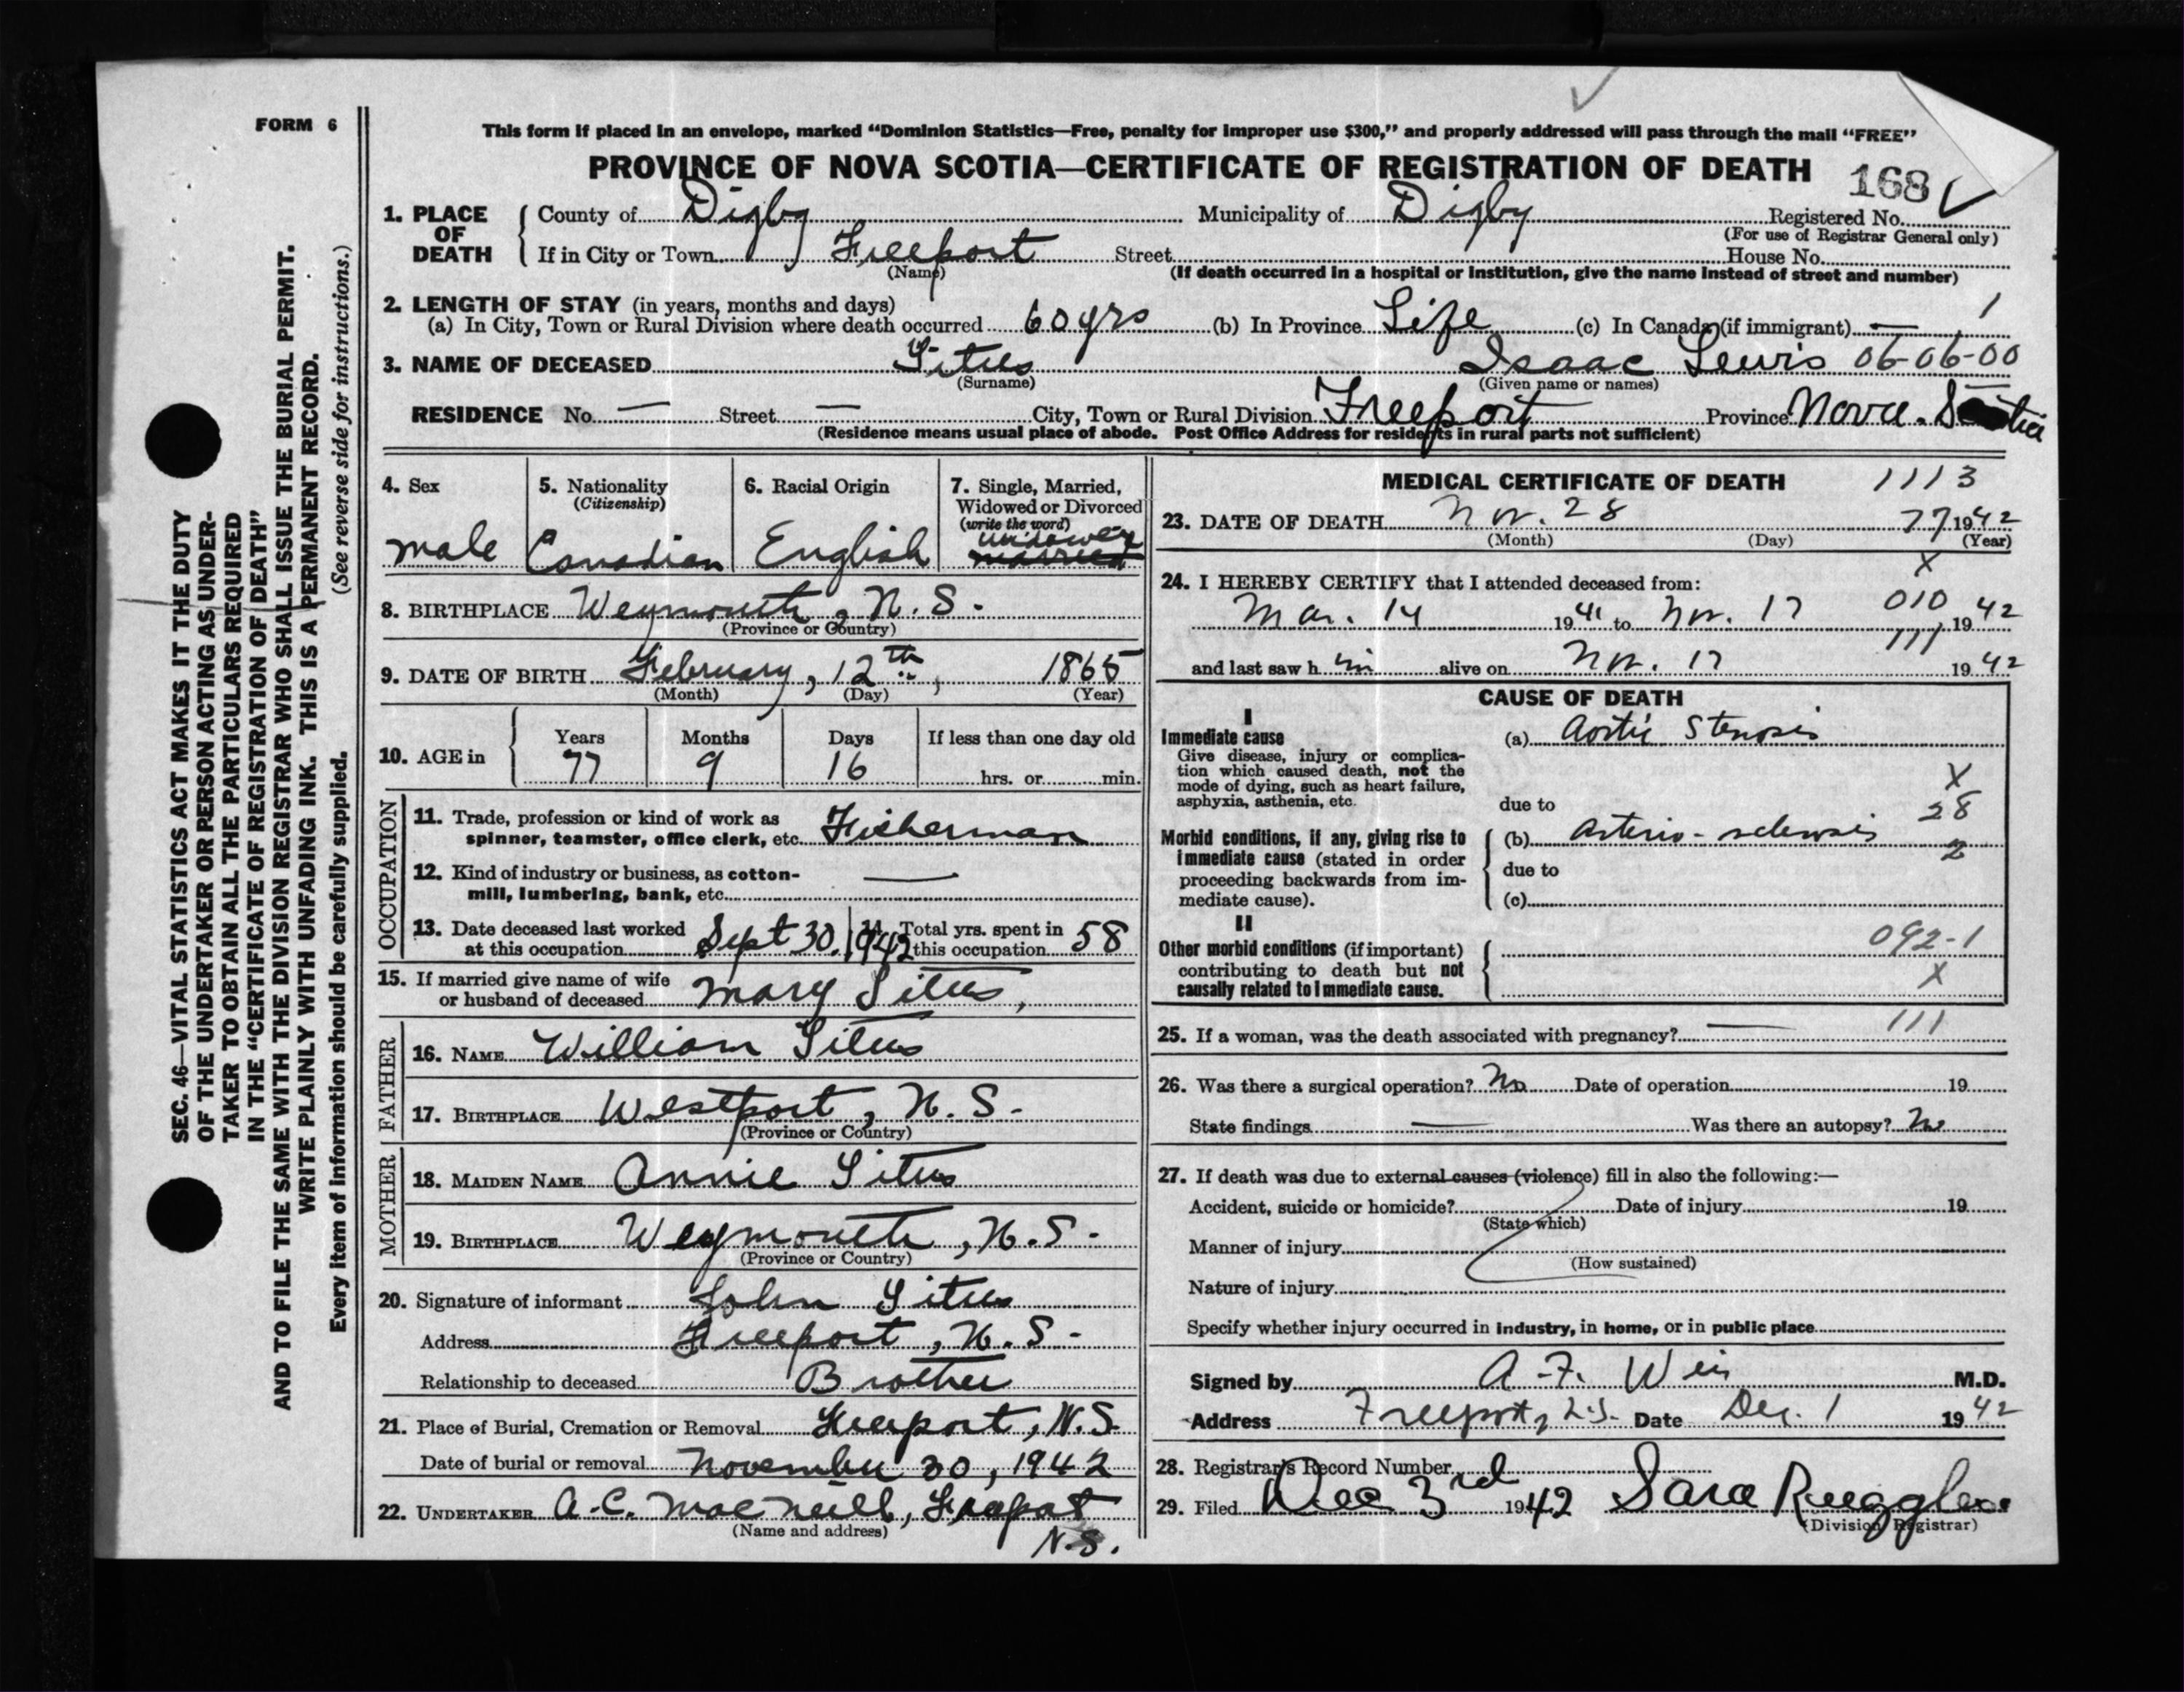 FORM 6
This form if placed in an envelope, marked “Dominion Statistics—Free, penalty for improper use $300,” and properly addressed will pass through the mail “FREE”
PROVINCE OF NOVA SCOTIA—CERTIFICATE OF REGISTRATION OF DEATH
168
1. PLACE OF DEATH { County of Digby Municipality of Digby Registered No.
(For use of Registrar General only)
If in City or Town Freeport Street House No.
(Name) (If death occurred in a hospital or institution, give the name instead of street and number)
2. LENGTH OF STAY (in years, months and days)
(a) In City, Town or Rural Division where death occurred 60 yrs (b) In Province Life (c) In Canada (if immigrant) — 1
3. NAME OF DECEASED Titus Isaac Lewis 06-06-00
(Surname) (Given name or names)
RESIDENCE No. — Street — City, Town or Rural Division Freeport Province Nova. Scotia
(Residence means usual place of abode. Post Office Address for residents in rural parts not sufficient)
4. Sex
male
5. Nationality
(Citizenship)
Canadian
6. Racial Origin
English
7. Single, Married,
Widowed or Divorced
(write the word)
widower
married
8. BIRTHPLACE Weymouth, N.S.
(Province or Country)
9. DATE OF BIRTH February, 12th, 1865
(Month) (Day) (Year)
10. AGE in { Years Months Days If less than one day old
77 9 16 hrs. or min.
OCCUPATION
11. Trade, profession or kind of work as
spinner, teamster, office clerk, etc. Fisherman
12. Kind of industry or business, as cotton-
mill, lumbering, bank, etc. —
13. Date deceased last worked
at this occupation Sept 30, 1942
14. Total yrs. spent in
this occupation 58
15. If married give name of wife
or husband of deceased Mary Titus,
FATHER
16. NAME William Titus
17. BIRTHPLACE Westport, N.S.
(Province or Country)
MOTHER
18. MAIDEN NAME Annie Titus
19. BIRTHPLACE Weymouth, N.S.
(Province or Country)
20. Signature of informant John Titus
Address Freeport, N.S.
Relationship to deceased Brother
21. Place of Burial, Cremation or Removal Freeport, N.S.
Date of burial or removal November 30, 1942
22. UNDERTAKER A.C. MacNeill, Freeport
(Name and address) N.S.
MEDICAL CERTIFICATE OF DEATH 1113
23. DATE OF DEATH Nov. 28 77 1942
(Month) (Day) (Year)
X
24. I HEREBY CERTIFY that I attended deceased from:
010
Mar. 14 1941 to Nov. 17, 1942
111
and last saw h im alive on Nov. 17 1942
CAUSE OF DEATH
I
Immediate cause (a) Aortic Stenosis
Give disease, injury or complica-
tion which caused death, not the
mode of dying, such as heart failure,
asphyxia, asthenia, etc.
X
due to
28
Morbid conditions, if any, giving rise to
immediate cause (stated in order
proceeding backwards from im-
mediate cause).
(b) Arterio-sclerosis
2
due to
(c)
II
Other morbid conditions (if important)
contributing to death but not
causally related to immediate cause.
092-1
X
25. If a woman, was the death associated with pregnancy? — 111
26. Was there a surgical operation? No Date of operation 19
State findings — Was there an autopsy? No
27. If death was due to external causes (violence) fill in also the following:—
Accident, suicide or homicide? Date of injury 19
(State which)
Manner of injury
(How sustained)
Nature of injury
Specify whether injury occurred in industry, in home, or in public place
Signed by A.F. Weir M.D.
Address Freeport, N.S. Date Dec. 1 1942
28. Registrar's Record Number
29. Filed Dec 3rd 1942 Sara Ruggles
(Division Registrar)
SEC. 46—VITAL STATISTICS ACT MAKES IT THE DUTY
OF THE UNDERTAKER OR PERSON ACTING AS UNDER-
TAKER TO OBTAIN ALL THE PARTICULARS REQUIRED
IN THE “CERTIFICATE OF REGISTRATION OF DEATH”
AND TO FILE THE SAME WITH THE DIVISION REGISTRAR WHO SHALL ISSUE THE BURIAL PERMIT.
WRITE PLAINLY WITH UNFADING INK. THIS IS A PERMANENT RECORD.
Every item of information should be carefully supplied. (See reverse side for instructions.)